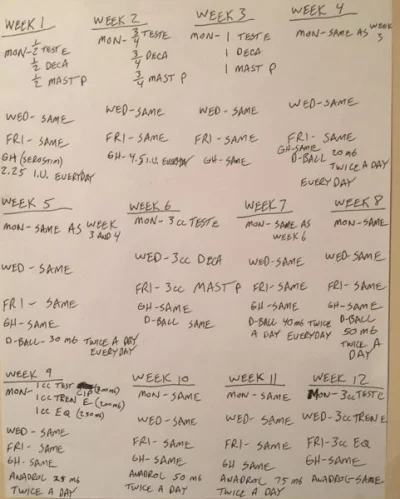 WEEK 1
MON- 1/2 TEST E
1/2 DECA
1/2 MAST P
WED- SAME
FRI- SAME
GH (SEROSTIM)
2.25 I.U. EVERYDAY
WEEK 2
MON- 3/4 TESTE
3/4 DECA
3/4 MAST P
WED- SAME
FRI- SAME
GH- 4.5 I.U. EVERYDAY
WEEK 3
MON- 1 TESTE
1 DECA
1 MAST P
WED- SAME
FRI- SAME
GH- SAME
WEEK 4
MON-SAME AS WEEK
3
WED- SAME
FRI- SAME
GH-SAME
D-BALL- 20 MG
TWICE A DAY
EVERY DAY
WEEK 5
MON- SAME AS WEEK
3 AND 4
WED - SAME
FRI- SAME
GH- SAME
D-BALL- 30 MG TWICE A DAY
EVERYDAY
WEEK 6
MON- 3cc TESTE
WED- 3cc DECA
FRI- 3cc MAST P
GH- SAME
D-BALL SAME
WEEK 7
MON- SAME AS
WEEK 6
WED- SAME
FRI- SAME
GH- SAME
D-BALL 40 MG TWICE
A DAY EVERYDAY
WEEK 8
MON- SAME
WED- SAME
FRI- SAME
GH- SAME
D-BALL
50 MG
TWICE A
DAY
WEEK 9
MON- 1cc TEST CIP (200 MG)
1cc TREN E (200 MG)
1cc EQ (250 MG)
WED- SAME
FRI- SAME
GH- SAME
ANADROL 25 MG
TWICE A DAY
WEEK 10
MON- SAME
WED- SAME
FRI- SAME
GH- SAME
ANADROL 50 MG
TWICE A DAY
WEEK 11
MON- SAME
WED- SAME
FRI- SAME
GH SAME
ANADROL 75 MG
TWICE A DAY
WEEK 12
MON-3cc TESTE
WED-3cc TREN E
FRI-3cc EQ
GH-SAME
ANADROL-SAME